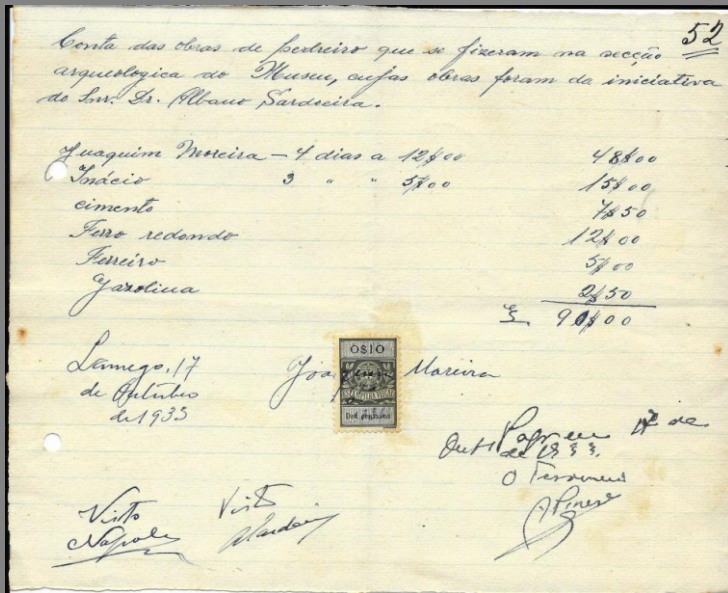 52
Conta das obras de pedreiro que se fizeram na secção
arqueologica do Museu, cujas obras foram da iniciativa
do Snr. Dr. Albano Sardoeira.
Juaquim Moreira – 4 dias a 12$00 48$00
Inácio 3 " " 5$00 15$00
cimento 7$50
Ferro redondo 12$00
Ferreiro 5$00
Gazolina 2$50
90$00
Lamego, 17
de Outubro
de 1933
Joaquim Moreira
0$10
Pagueu 17 de
Outº de 1933.
O Tesoureiro
Visto
Visto